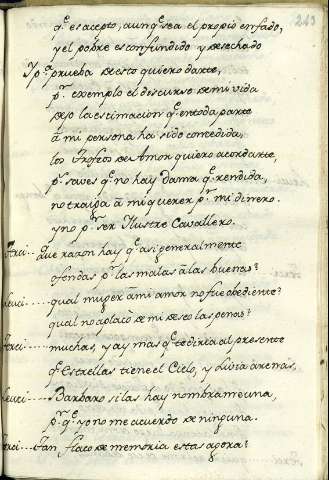 213
q.^e es acepto, aunq.^e sea el propio enfado,
y el pobre es confundido y desechado
Y p.^a prueba de esto quiero darte,
p.^r exemplo el descurso de mi vida
dejo la estimacion q.^e en toda parte
â mi persona ha sido concedida,
los Trofeos de Amor quiero acordarte,
p.^s saves q.^e no hay Dama q.^e rendida,
no traiga â mi querer p.^r mi dinero
y no p.^r ser Ilustre Cavallero.
Que razon hay q.^e asi generalmente
ofendas p.^r las malas â las buenas?
Leuci.....qual muger â mi amor no fue obediente?
qual no aplacò de mi deseo las penas?
muchas, y ay mas q.^e te diria al presente
q.^e Estrellas tiene el Cielo, y Livia arenas,
Leuci.....Barbaro si las hay nombrame una,
p.^r q.^e yo no me acuerdo de ninguna.
Tan flaco de memoria estas agora?